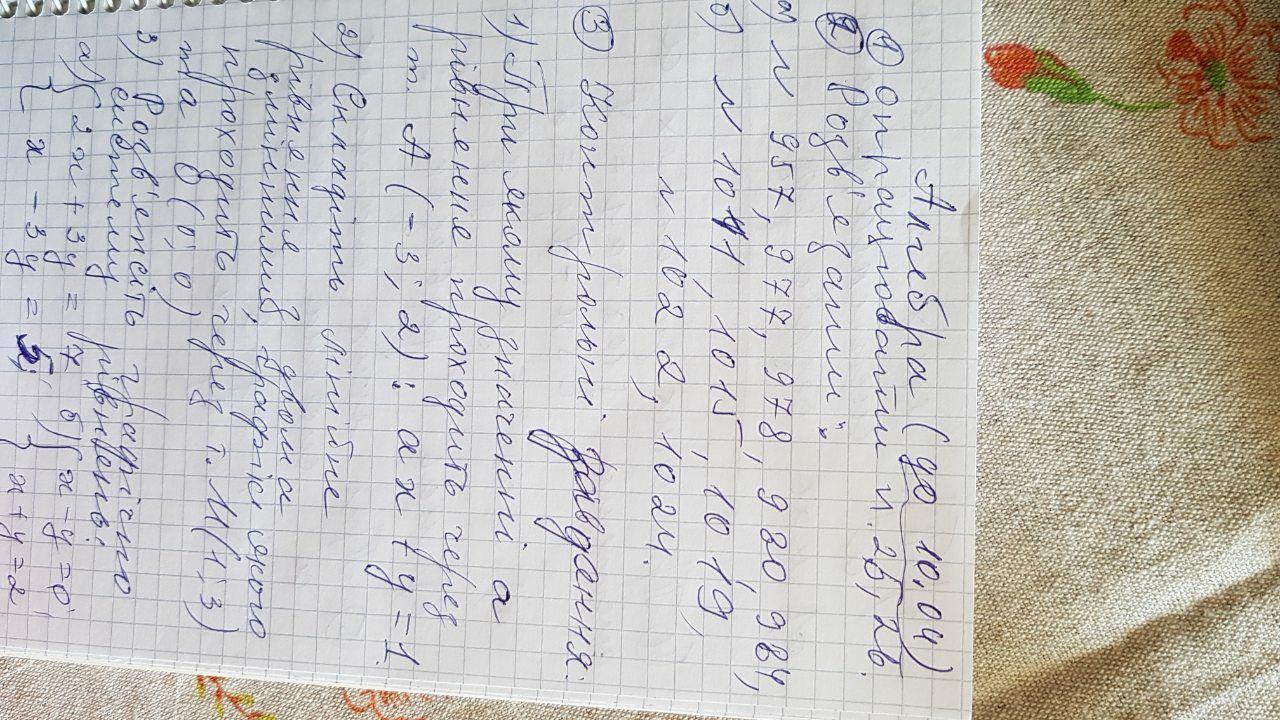 Алгебра (до 10.04)
① опрацювати п. 25, 26.
② Розв'язати:
а) N 957, 977, 978, 980, 984,
б) N 1011, 1015, 1019,
N 1022, 1024.
③ Контрольні завдання:
1) При якому значенні а
рівняння проходить через
т. А (-3; 2): ax + y = 1
2) Складіть лінійне
рівняння з двома
змінними, графік якого
проходить через т. М(1; 3)
та В (0; 0)
3) Розв'яжіть графічно
систему рівнянь:
а) { 2x + 3y = 7 б) { x - y = 0,
x - 3y = 5, x + y = 2